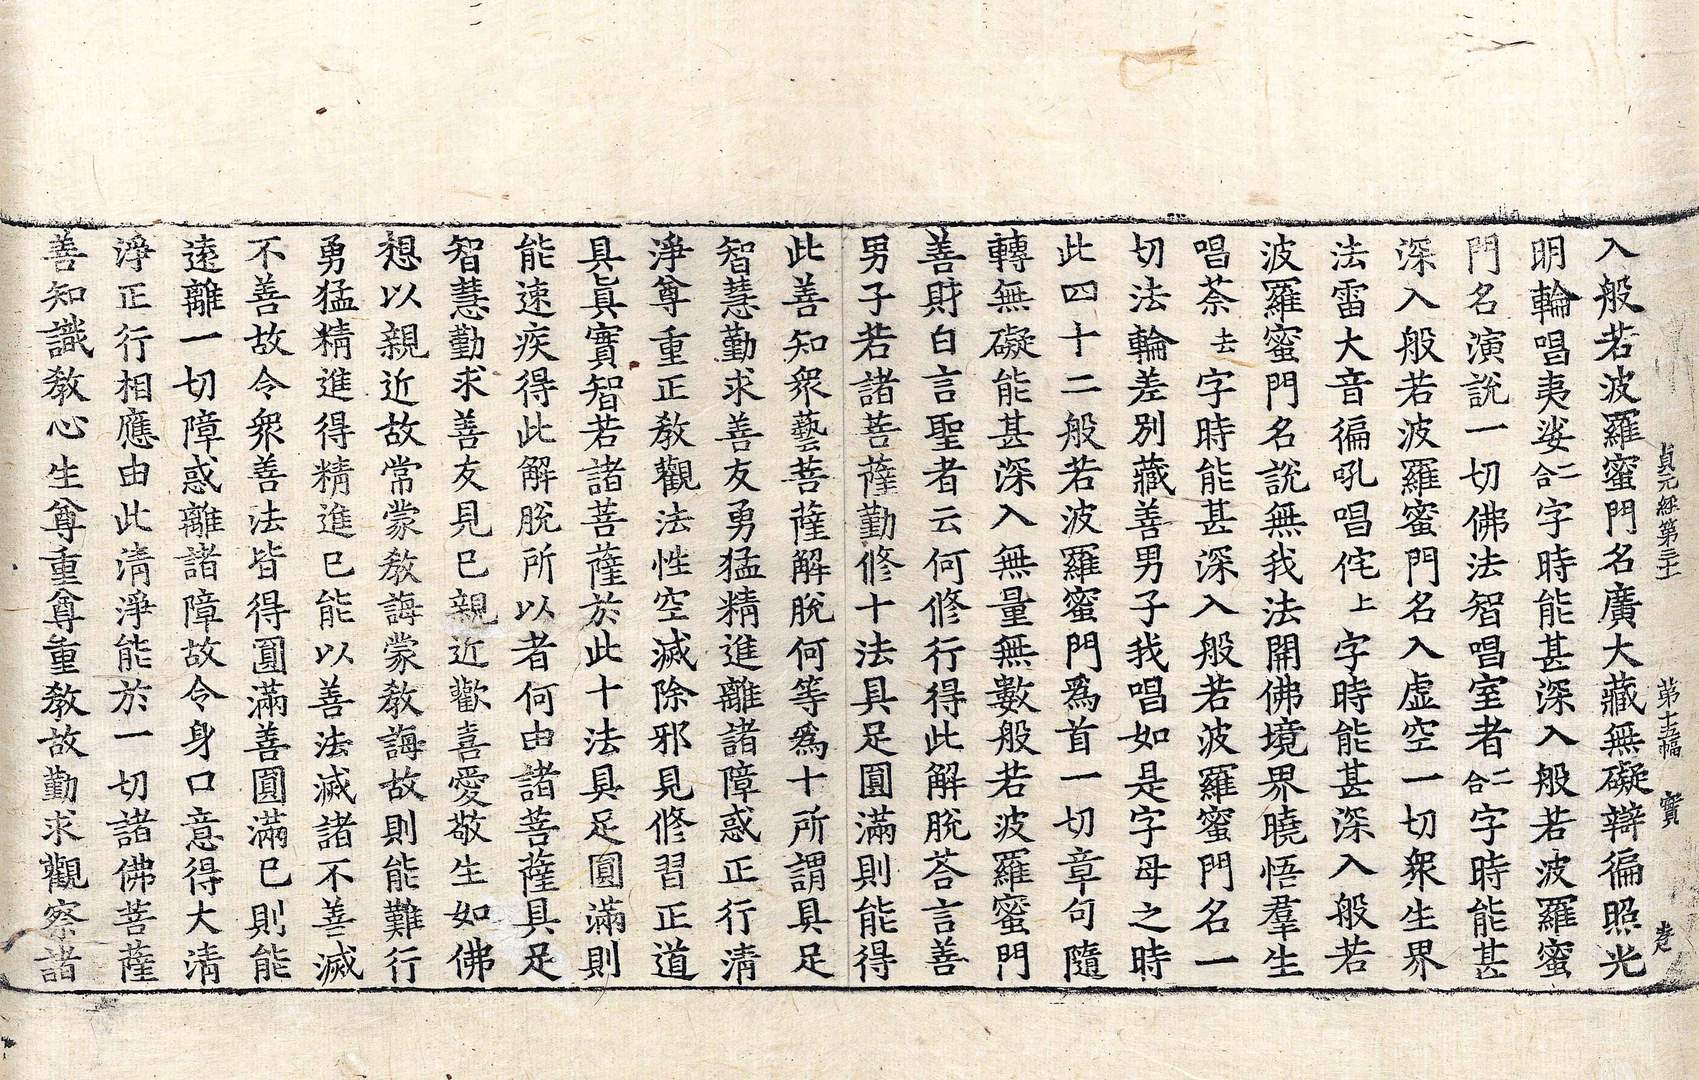 貞元經第三十一　第十五幅　寶　老
入般若波羅蜜門名廣大藏無礙辯徧照光
明輪唱夷娑二合字時能甚深入般若波羅蜜
門名演說一切佛法智唱室者二合字時能甚
深入般若波羅蜜門名入虛空一切衆生界
法雷大音徧吼唱侘上字時能甚深入般若
波羅蜜門名說無我法開佛境界曉悟羣生
唱荼去字時能甚深入般若波羅蜜門名一
切法輪差別藏善男子我唱如是字母之時
此四十二般若波羅蜜門爲首一切章句隨
轉無礙能甚深入無量無數般若波羅蜜門
善財白言聖者云何修行得此解脫荅言善
男子若諸菩薩勤修十法具足圓滿則能得
此善知衆藝菩薩解脫何等爲十所謂具足
智慧勤求善友勇猛精進離諸障惑正行清
淨尊重正敎觀法性空滅除邪見修習正道
具眞實智若諸菩薩於此十法具足圓滿則
能速疾得此解脫所以者何由諸菩薩具足
智慧勤求善友見已親近歡喜愛敬生如佛
想以親近故常蒙敎誨蒙敎誨故則能難行
勇猛精進得精進已能以善法滅諸不善滅
不善故令衆善法皆得圓滿善圓滿已則能
遠離一切障惑離諸障故令身口意得大清
淨正行相應由此清淨能於一切諸佛菩薩
善知識敎心生尊重尊重敎故勤求觀察諸